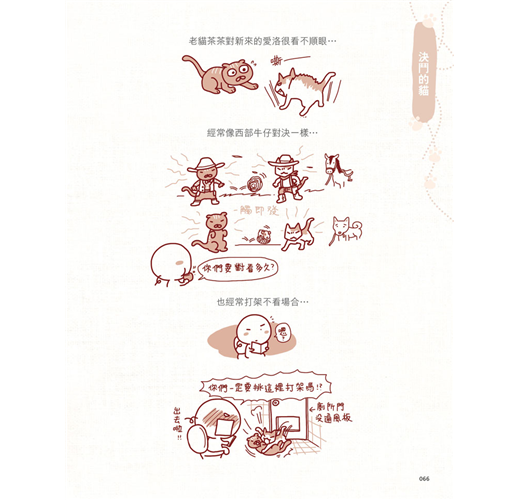 決鬥的貓
老貓茶茶對新來的愛洛很看不順眼…
嘶
經常像西部牛仔對決一樣…
一觸即發
你們要對看多久?
也經常打架不看場合…
嗯?
你們一定要挑這裡打架嗎!?
出去啦!!
←廁所門
066